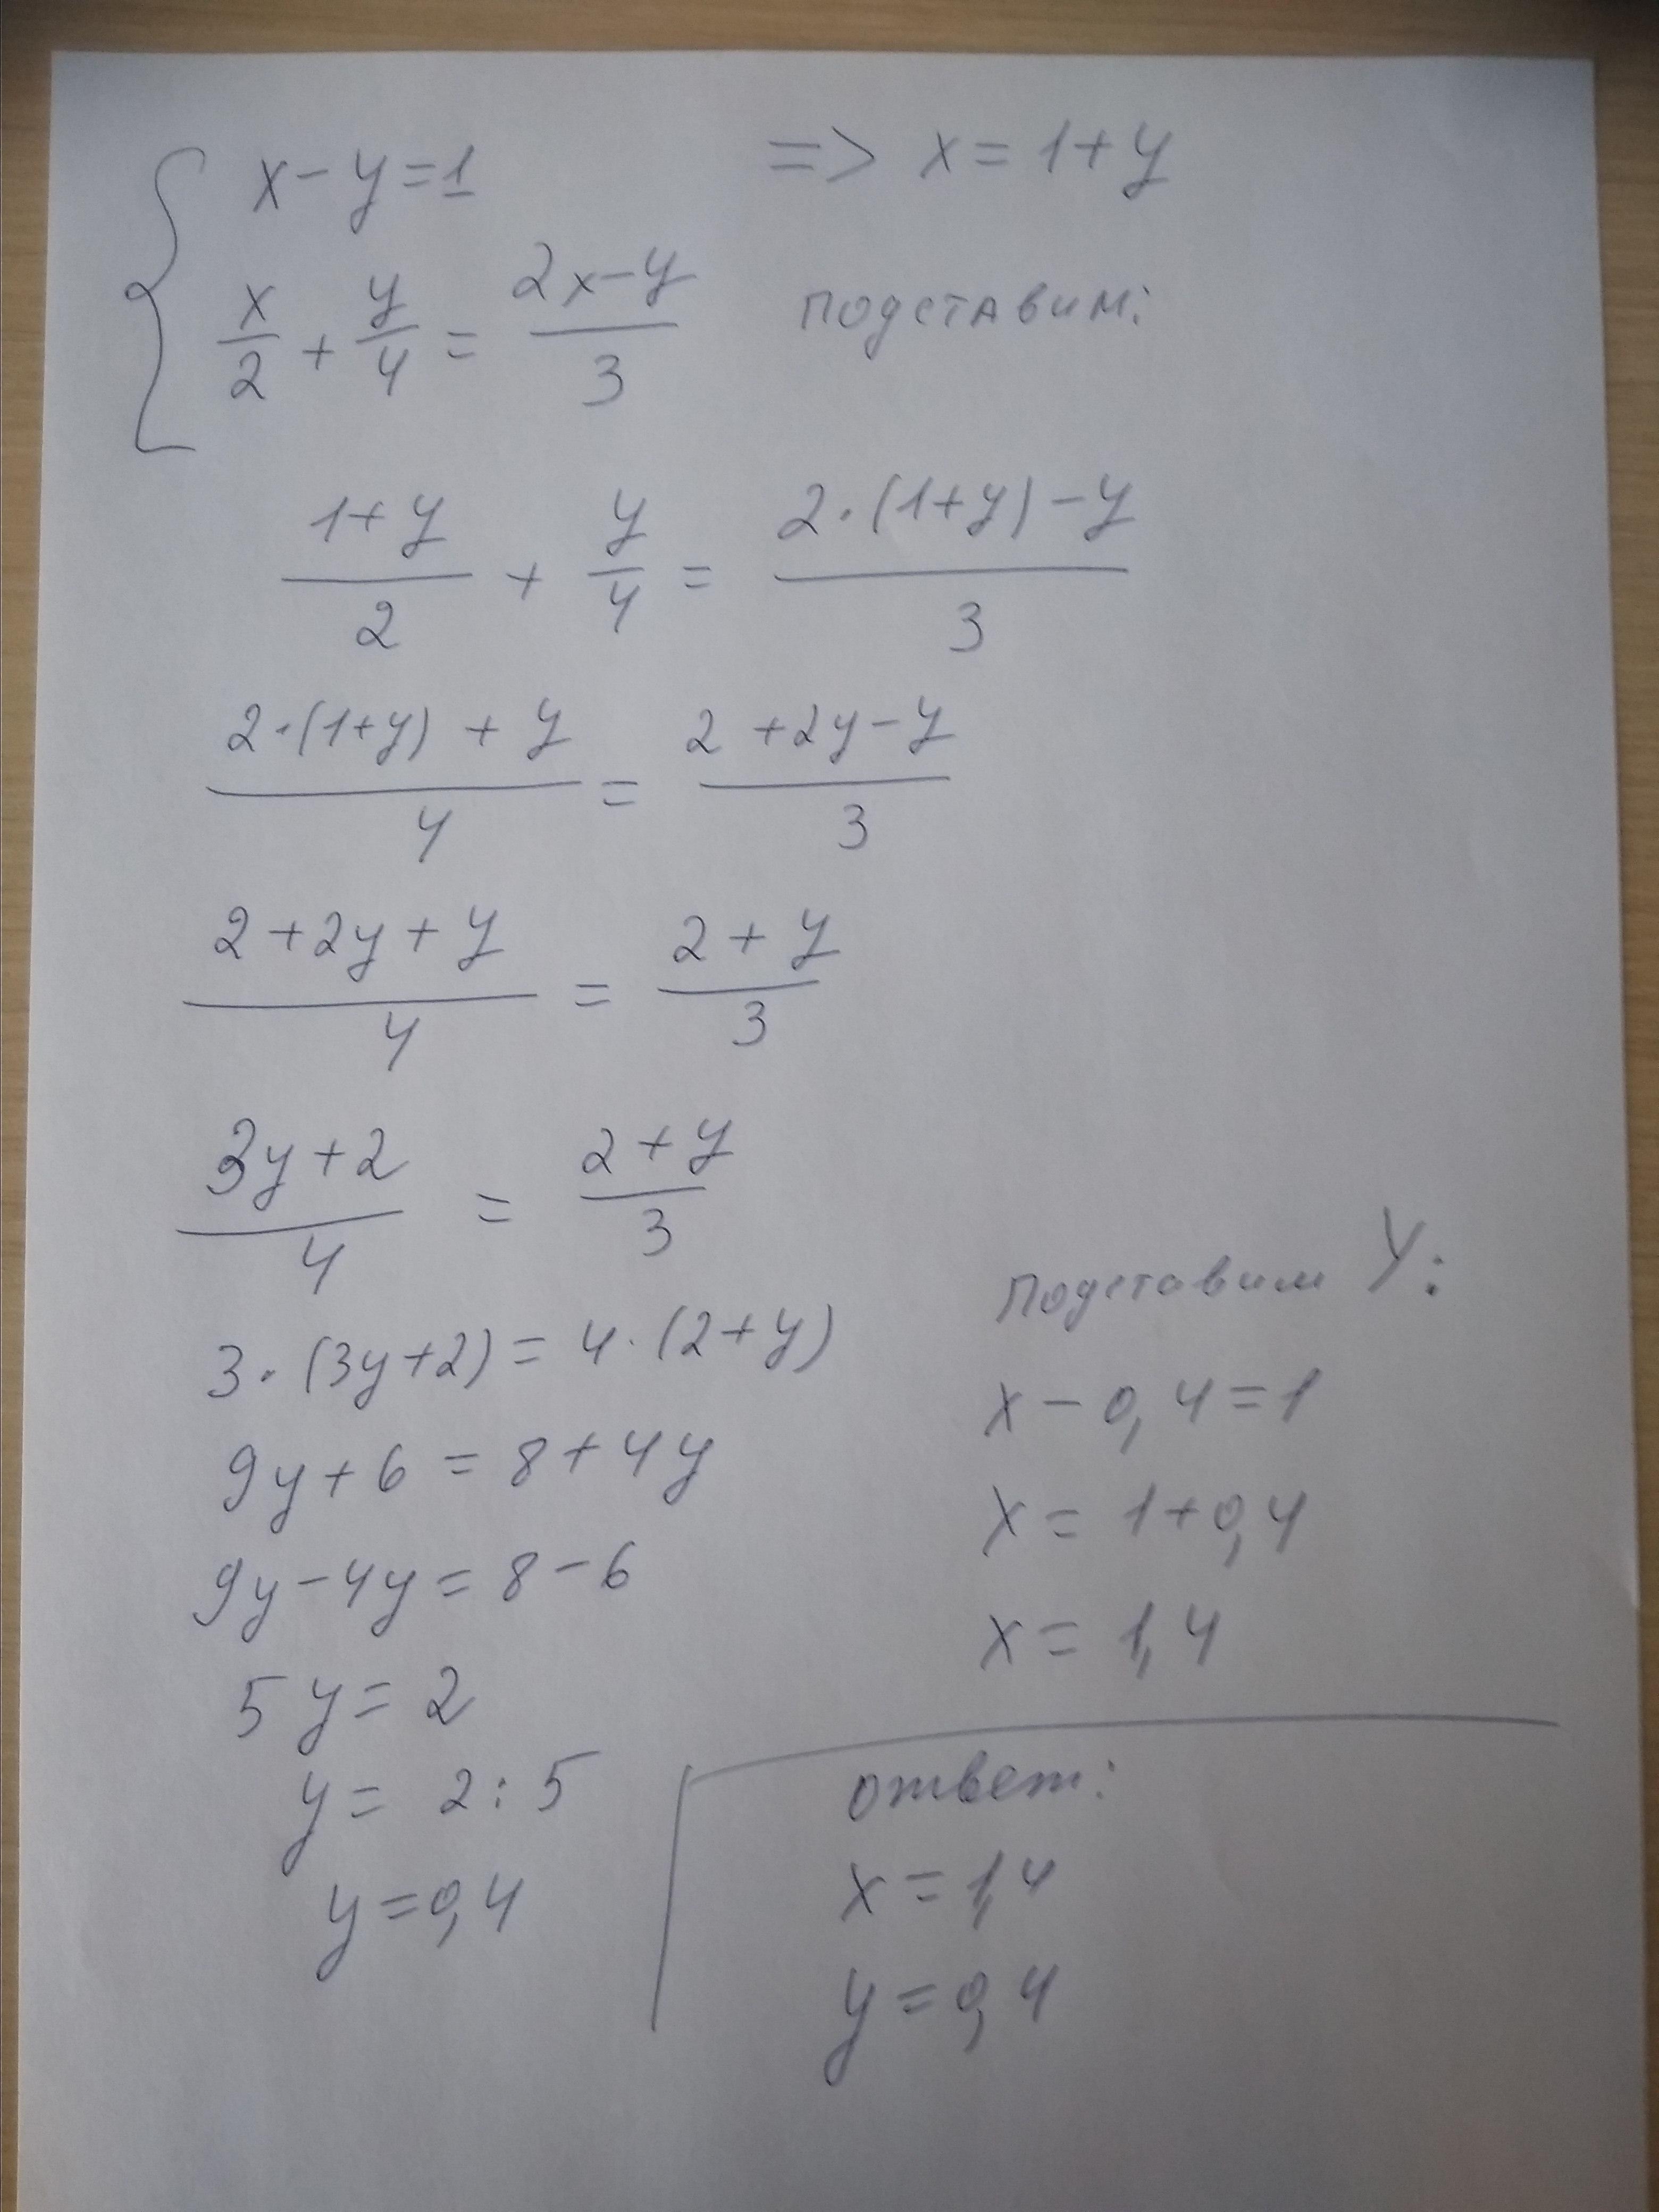 x - y = 1 => x = 1 + y
x/2 + y/4 = (2x - y)/3 подставим:
(1 + y)/2 + y/4 = (2·(1 + y) - y)/3
(2·(1 + y) + y)/4 = (2 + 2y - y)/3
(2 + 2y + y)/4 = (2 + y)/3
(3y + 2)/4 = (2 + y)/3
3·(3y + 2) = 4·(2 + y)
9y + 6 = 8 + 4y
9y - 4y = 8 - 6
5y = 2
y = 2 : 5
y = 0,4
Подставим Y:
x - 0,4 = 1
x = 1 + 0,4
x = 1,4
ответ:
x = 1,4
y = 0,4